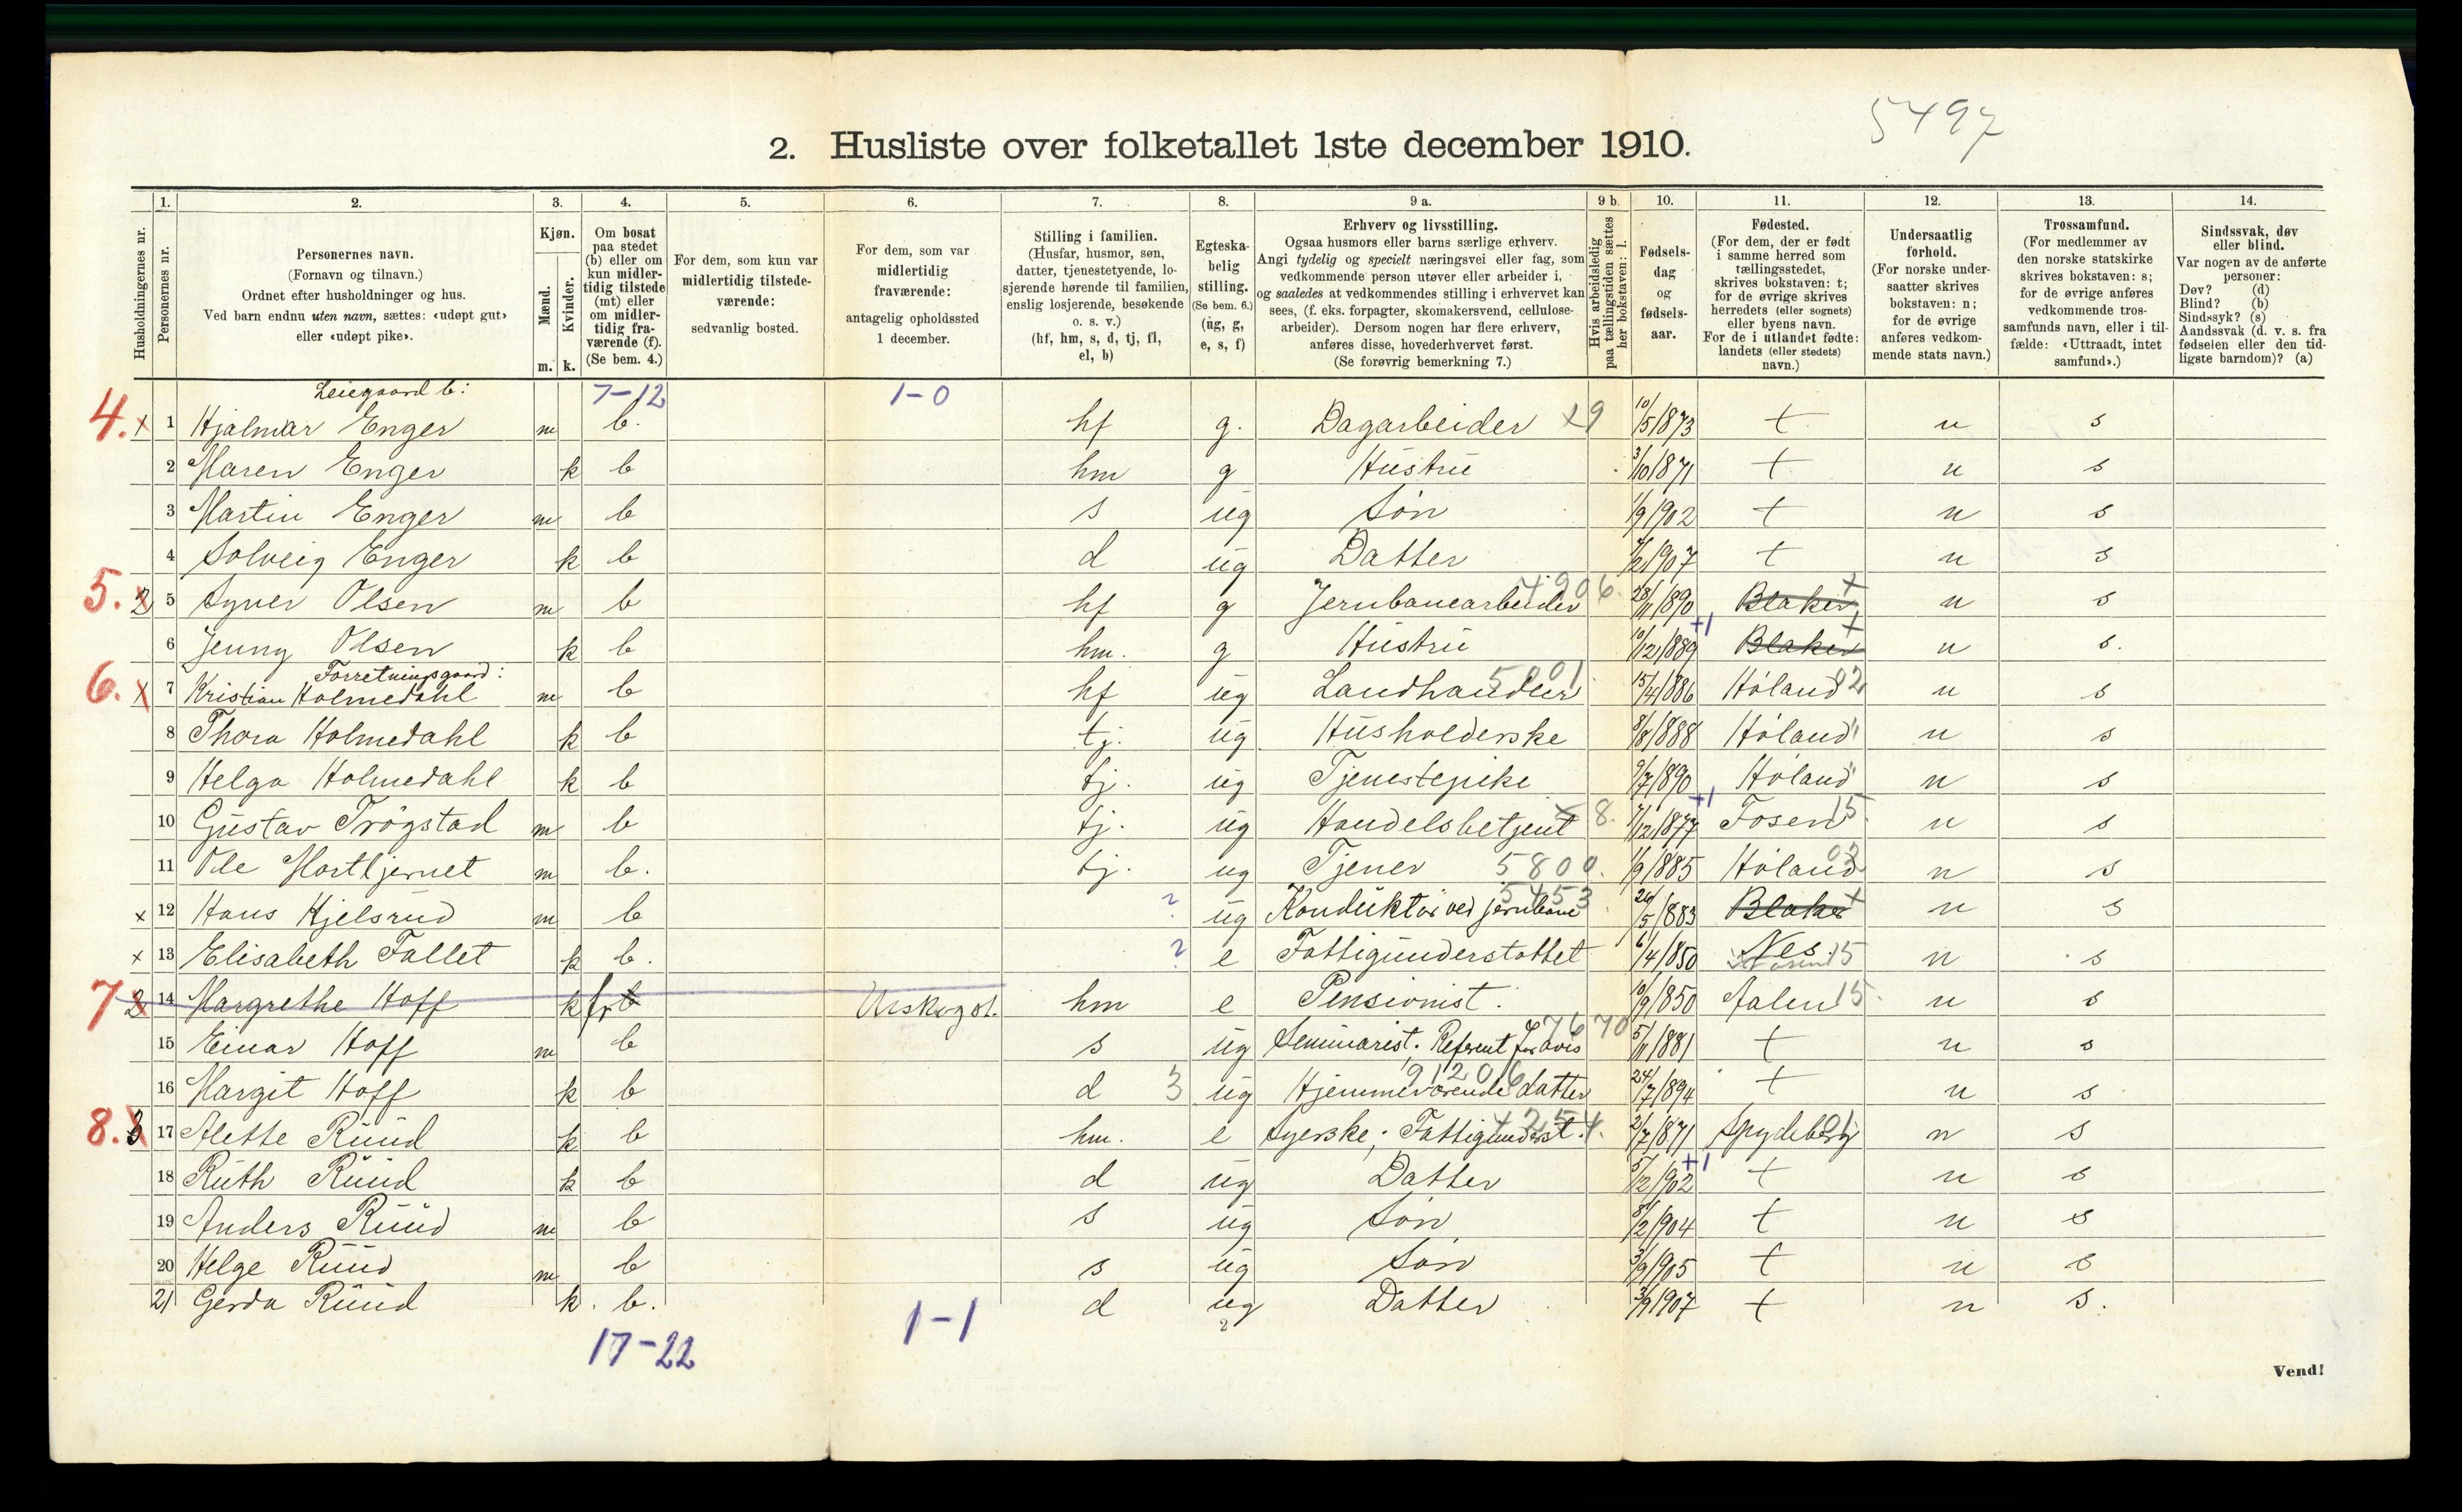 5497
2. Husliste over folketallet 1ste december 1910.
Husholdningernes nr.
1. Personernes nr.
2. Personernes navn. (Fornavn og tilnavn.) Ordnet efter husholdninger og hus. Ved barn endnu uten navn, sættes: «udøpt gut» eller «udøpt pike».
3. Kjøn. Mænd. m. Kvinder. k.
4. Om bosat paa stedet (b) eller om kun midlertidig tilstede (mt) eller om midlertidig fraværende (f). (Se bem. 4.)
5. For dem, som kun var midlertidig tilstedeværende: sedvanlig bosted.
6. For dem, som var midlertidig fraværende: antagelig opholdssted 1 december.
7. Stilling i familien. (Husfar, husmor, søn, datter, tjenestetyende, losjerende hørende til familien, enslig losjerende, besøkende o. s. v.) (hf, hm, s, d, tj, fl, el, b)
8. Egteskabelig stilling. (Se bem. 6.) (ug, g, e, s, f)
9 a. Erhverv og livsstilling. Ogsaa husmors eller barns særlige erhverv. Angi tydelig og specielt næringsvei eller fag, som vedkommende person utøver eller arbeider i, og saaledes at vedkommendes stilling i erhvervet kan sees, (f. eks. forpagter, skomakersvend, cellulosearbeider). Dersom nogen har flere erhverv, anføres disse, hovederhvervet først. (Se forøvrig bemerkning 7.)
9 b. Hvis arbeidsledig paa tællingstiden sættes her bokstaven: l.
10. Fødselsdag og fødselsaar.
11. Fødested. (For dem, der er født i samme herred som tællingsstedet, skrives bokstaven: t; for de øvrige skrives herredets (eller sognets) eller byens navn. For de i utlandet fødte: landets (eller stedets) navn.)
12. Undersaatlig forhold. (For norske undersaatter skrives bokstaven: n; for de øvrige anføres vedkommende stats navn.)
13. Trossamfund. (For medlemmer av den norske statskirke skrives bokstaven: s; for de øvrige anføres vedkommende trossamfunds navn, eller i tilfælde: «Uttraadt, intet samfund».)
14. Sindssvak, døv eller blind. Var nogen av de anførte personer: Døv? (d) Blind? (b) Sindssyk? (s) Aandssvak (d. v. s. fra fødselen eller den tidligste barndom)? (a)
Leiegaard b: 7-12 1-0
4. x 1 Hjalmar Enger m b. hf g. Dagarbeider x9 10/5 1873 t n s
2 Maren Enger k b hm g Hustru 3/10 1871 t n s
3 Martin Enger m b s ug Søn 1/9 1902 t n s
4 Solveig Enger k b d ug Datter 7/2 1907 t n s
5. 2 5 Syver Olsen m b hf g Jernbanearbeider 4906. 28/11 1890 Blaker t n s
6 Jenny Olsen k b hm. g Hustru 10/12 1889 +1 Blaker t n s.
Forretningsgaard:
6. x 7 Kristian Holmedahl m b hf ug Landhandler 5001 15/4 1886 Høland 02 n s
8 Thora Holmedahl k b tj. ug Husholderske 8/8 1888 Høland " n s
9 Helga Holmedahl k b tj. ug Tjenestepike 9/7 1890 Høland " n s
10 Gustav Trøgstad m b tj. ug Handelsbetjent x8. 7/12 1877 +1 Fosen 15 n s
11 Ole Mortkjernet m b. tj. ug Tjener 5800. 1/9 1885 Høland 02 n s
x 12 Hans Hjelsrud m b ? ug Konduktør ved jernbane 5453 26/5 1883 Blaker t n s
x 13 Elisabeth Fallet k b. ? e Fattigunderstøttet 6/4 1850 Nes 15 n s
7 2 14 Margrethe Hoff k f b Urskog st. hm e Pensionist. 10/9 1850 Aalen 15. n s
15 Einar Hoff m b s ug Seminarist. Referent for avis 7670 5/11 1881 t n s
16 Margit Hoff k b d 3 ug Hjemmeværende datter 91206 24/7 1894 t n s
8. 3 17 Alette Ruud k b hm. e Syerske; Fattigunderst. 4254. 2/7 1871 Spydeberg 01 n s
18 Ruth Ruud k b d ug Datter 5/2 1902 +1 t n s
19 Anders Ruud m b s ug Søn 8/2 1904 t n s
20 Helge Ruud m b s ug Søn 3/9 1905 t n s
21 Gerda Ruud k. b. d ug Datter 3/9 1907 t n s.
17-22 1-1 2
Vend!